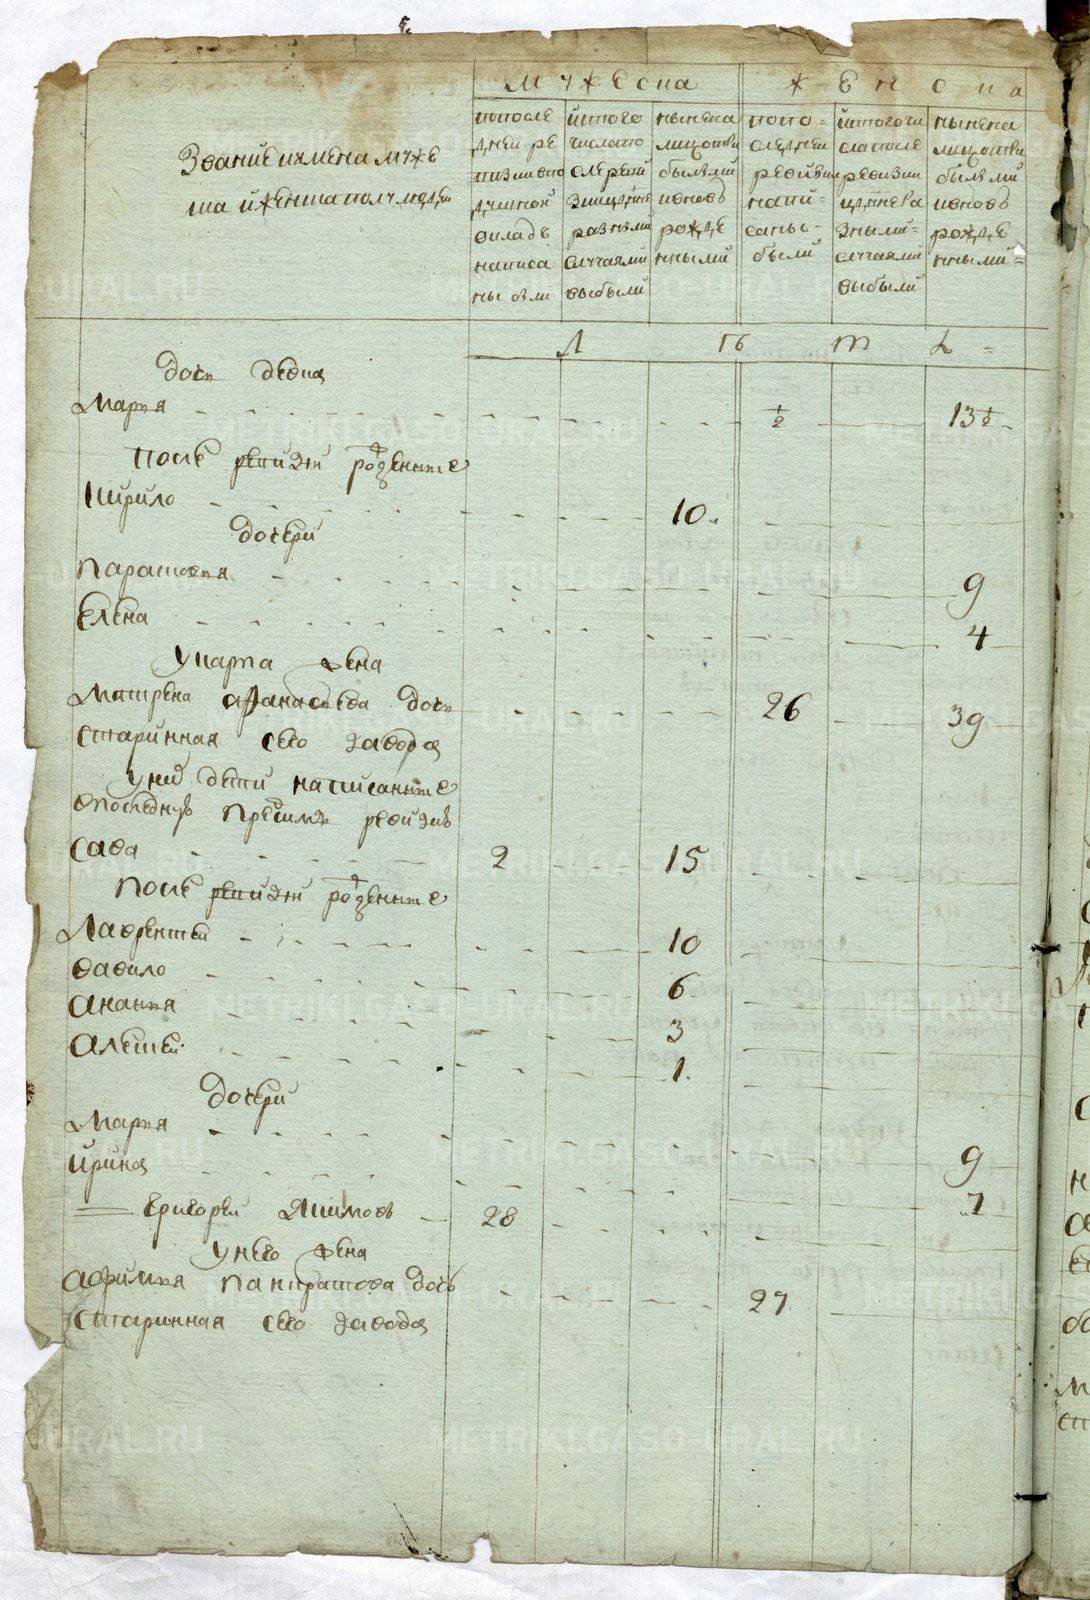 Звание и имена муже
ска и женска полу людей
мужеска
женска
по после
дней ре
визии в по
душной
окладъ
написа
ны были
ис того
числа по
сле ревизии
разными
случаями
выбыли
ныне на
лицо с при
былыми
и вновь
рожде
нными
по по=
следней
ревизии
напи=
саны=
были
ис того чи
сла после
ревизии
зными=
случаями
выбыли
ныне на
лицо с при
былыми
и вновь
рожде
нными=
Л е т ъ =
дочь девка
Мария 1/2 13 1/2
После ревизии рожденные
Кирило 10
дочери
Парасковия 9
Елена 4
у карпа жена
Матрена афанасьева дочь 26 39
старинная сего завода
у них дети написанные
в последную пред симъ ревизию
Сава 2 15
После ревизии рожденные
Лаврентей 10
вавило 6
анания 3
алексей 1
дочери
Мария 9
Ирина 7
Григорей Якимовъ 28
у него жена
Афимия Панкратова дочь 27
старинная сего завода
METRIKI.GASO-URAL.RU